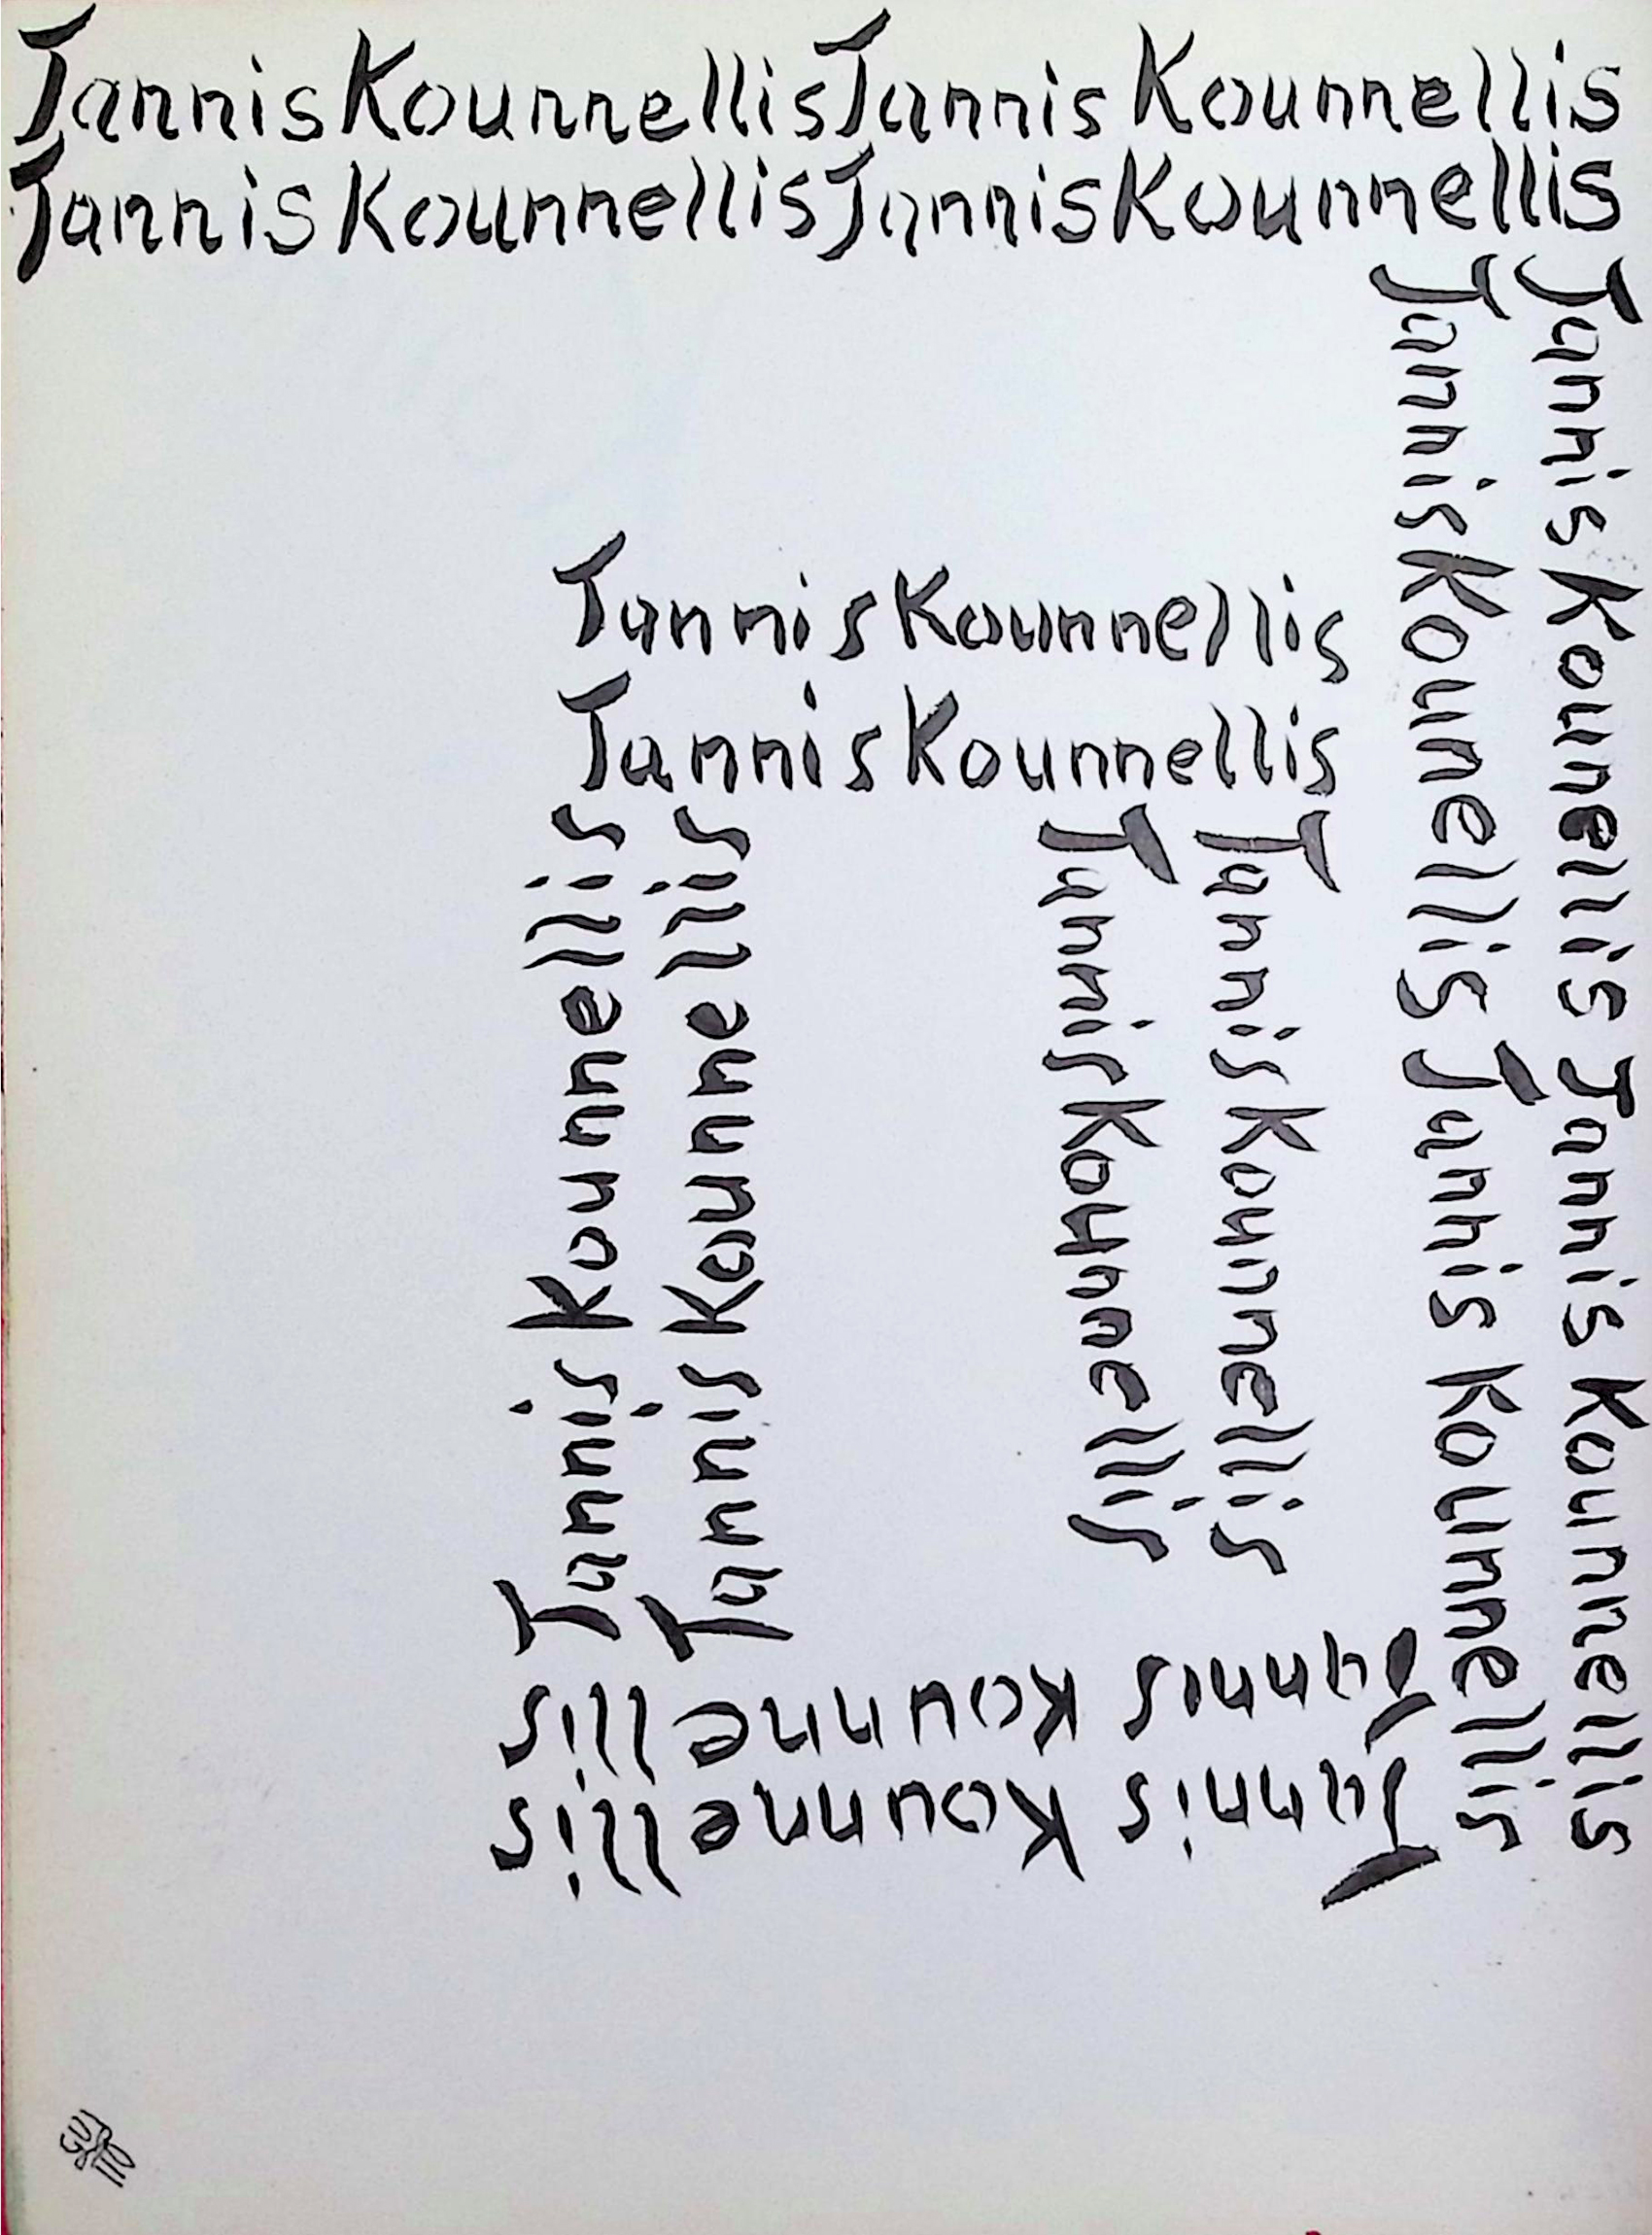 Jannis Kounnellis Jannis Kounnellis
Jannis Kounnellis Jannis Kounnellis
Jannis Kounellis Jannis Kounnellis
Jannis Kounellis Jannis Kounnellis
Jannis Kounnellis
Jannis Kounnellis
Jannis Kounnellis
Jannis Kounnellis
Jannis Kounnellis
Jannis Kounnellis
Jannis Kounnellis
Jannis Kounnellis